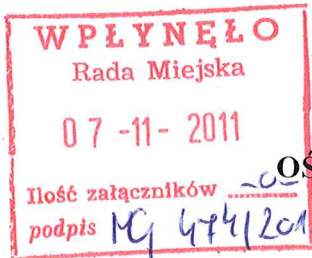 WPŁYNĘŁO
Rada Miejska
07 -11- 2011
Ilość załączników -0- OŚ
podpis 474/201